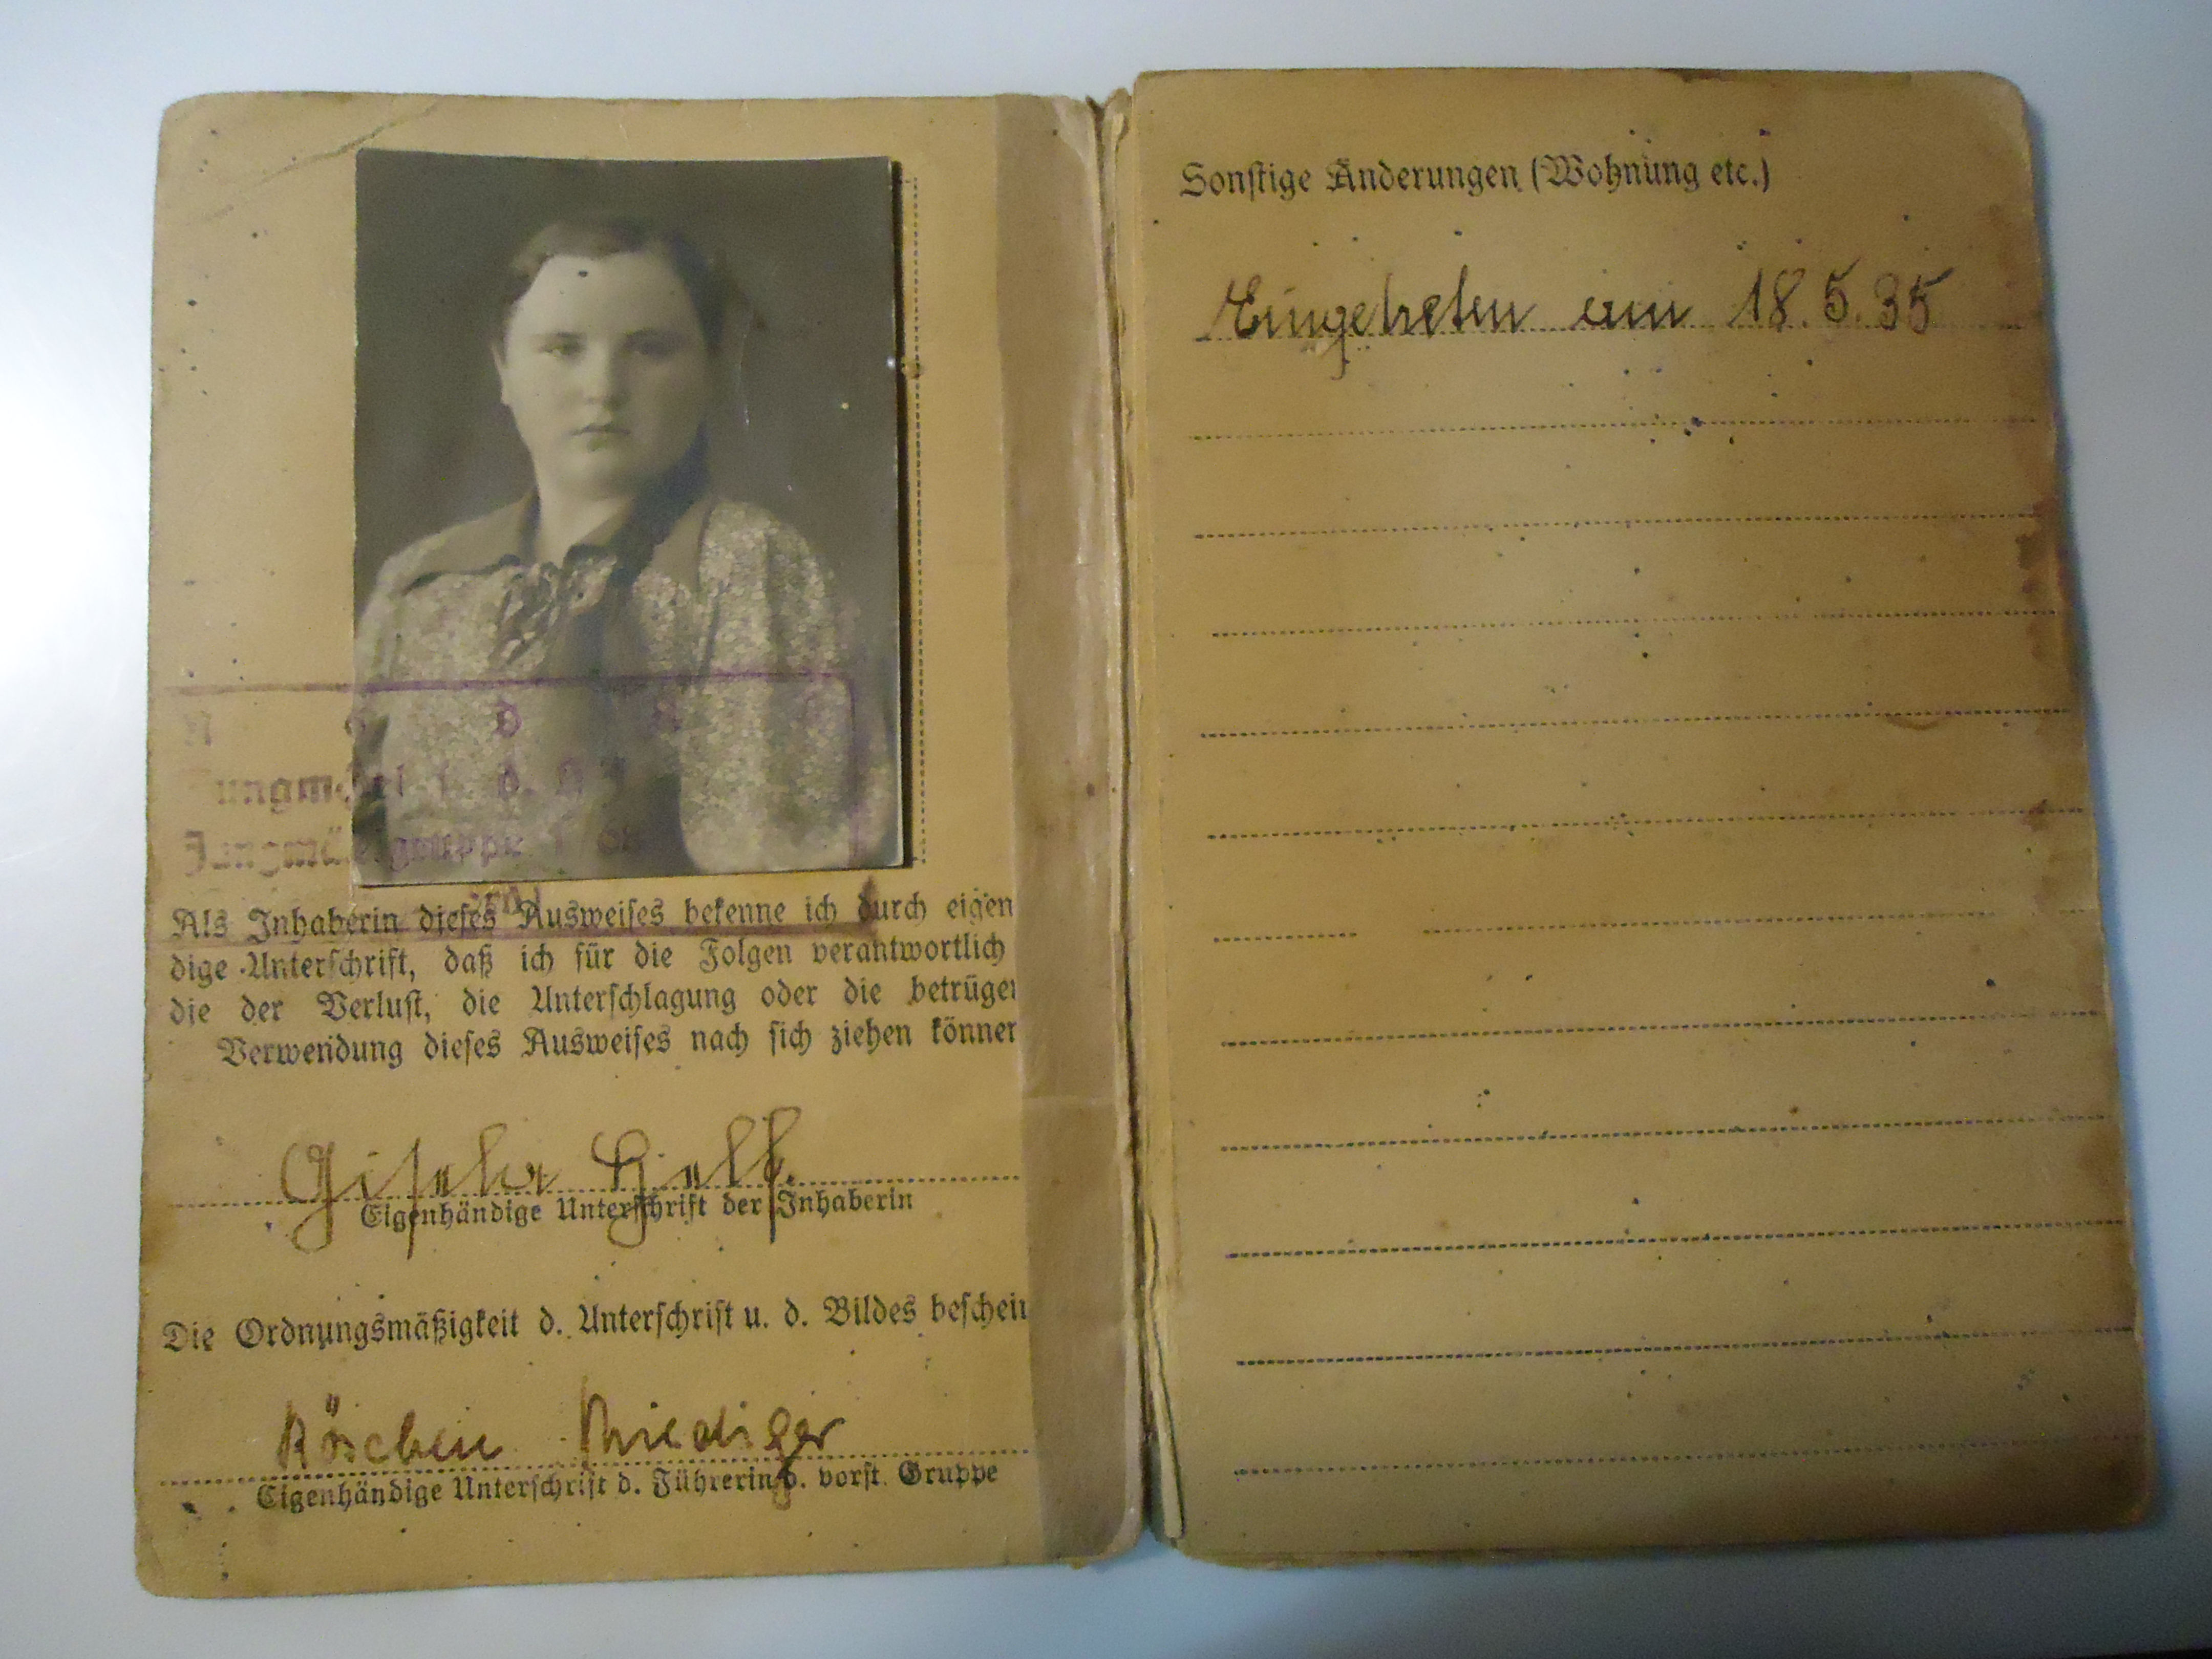 N S D A
ungmädel i. d. H J
Jungmädelgruppe
Als Inhaberin dieses Ausweises bekenne ich durch eigen
dige Unterschrift, daß ich für die Folgen verantwortlich
die der Verlust, die Unterschlagung oder die betrüger
Verwendung dieses Ausweises nach sich ziehen können
Gisela
Eigenhändige Unterschrift der Inhaberin
Die Ordnungsmäßigkeit d. Unterschrift u. d. Bildes beschein
Röschen Riediger
Eigenhändige Unterschrift d. Führerin d. vorst. Gruppe
Sonstige Änderungen (Wohnung etc.)
Eingetreten am 18.5.35